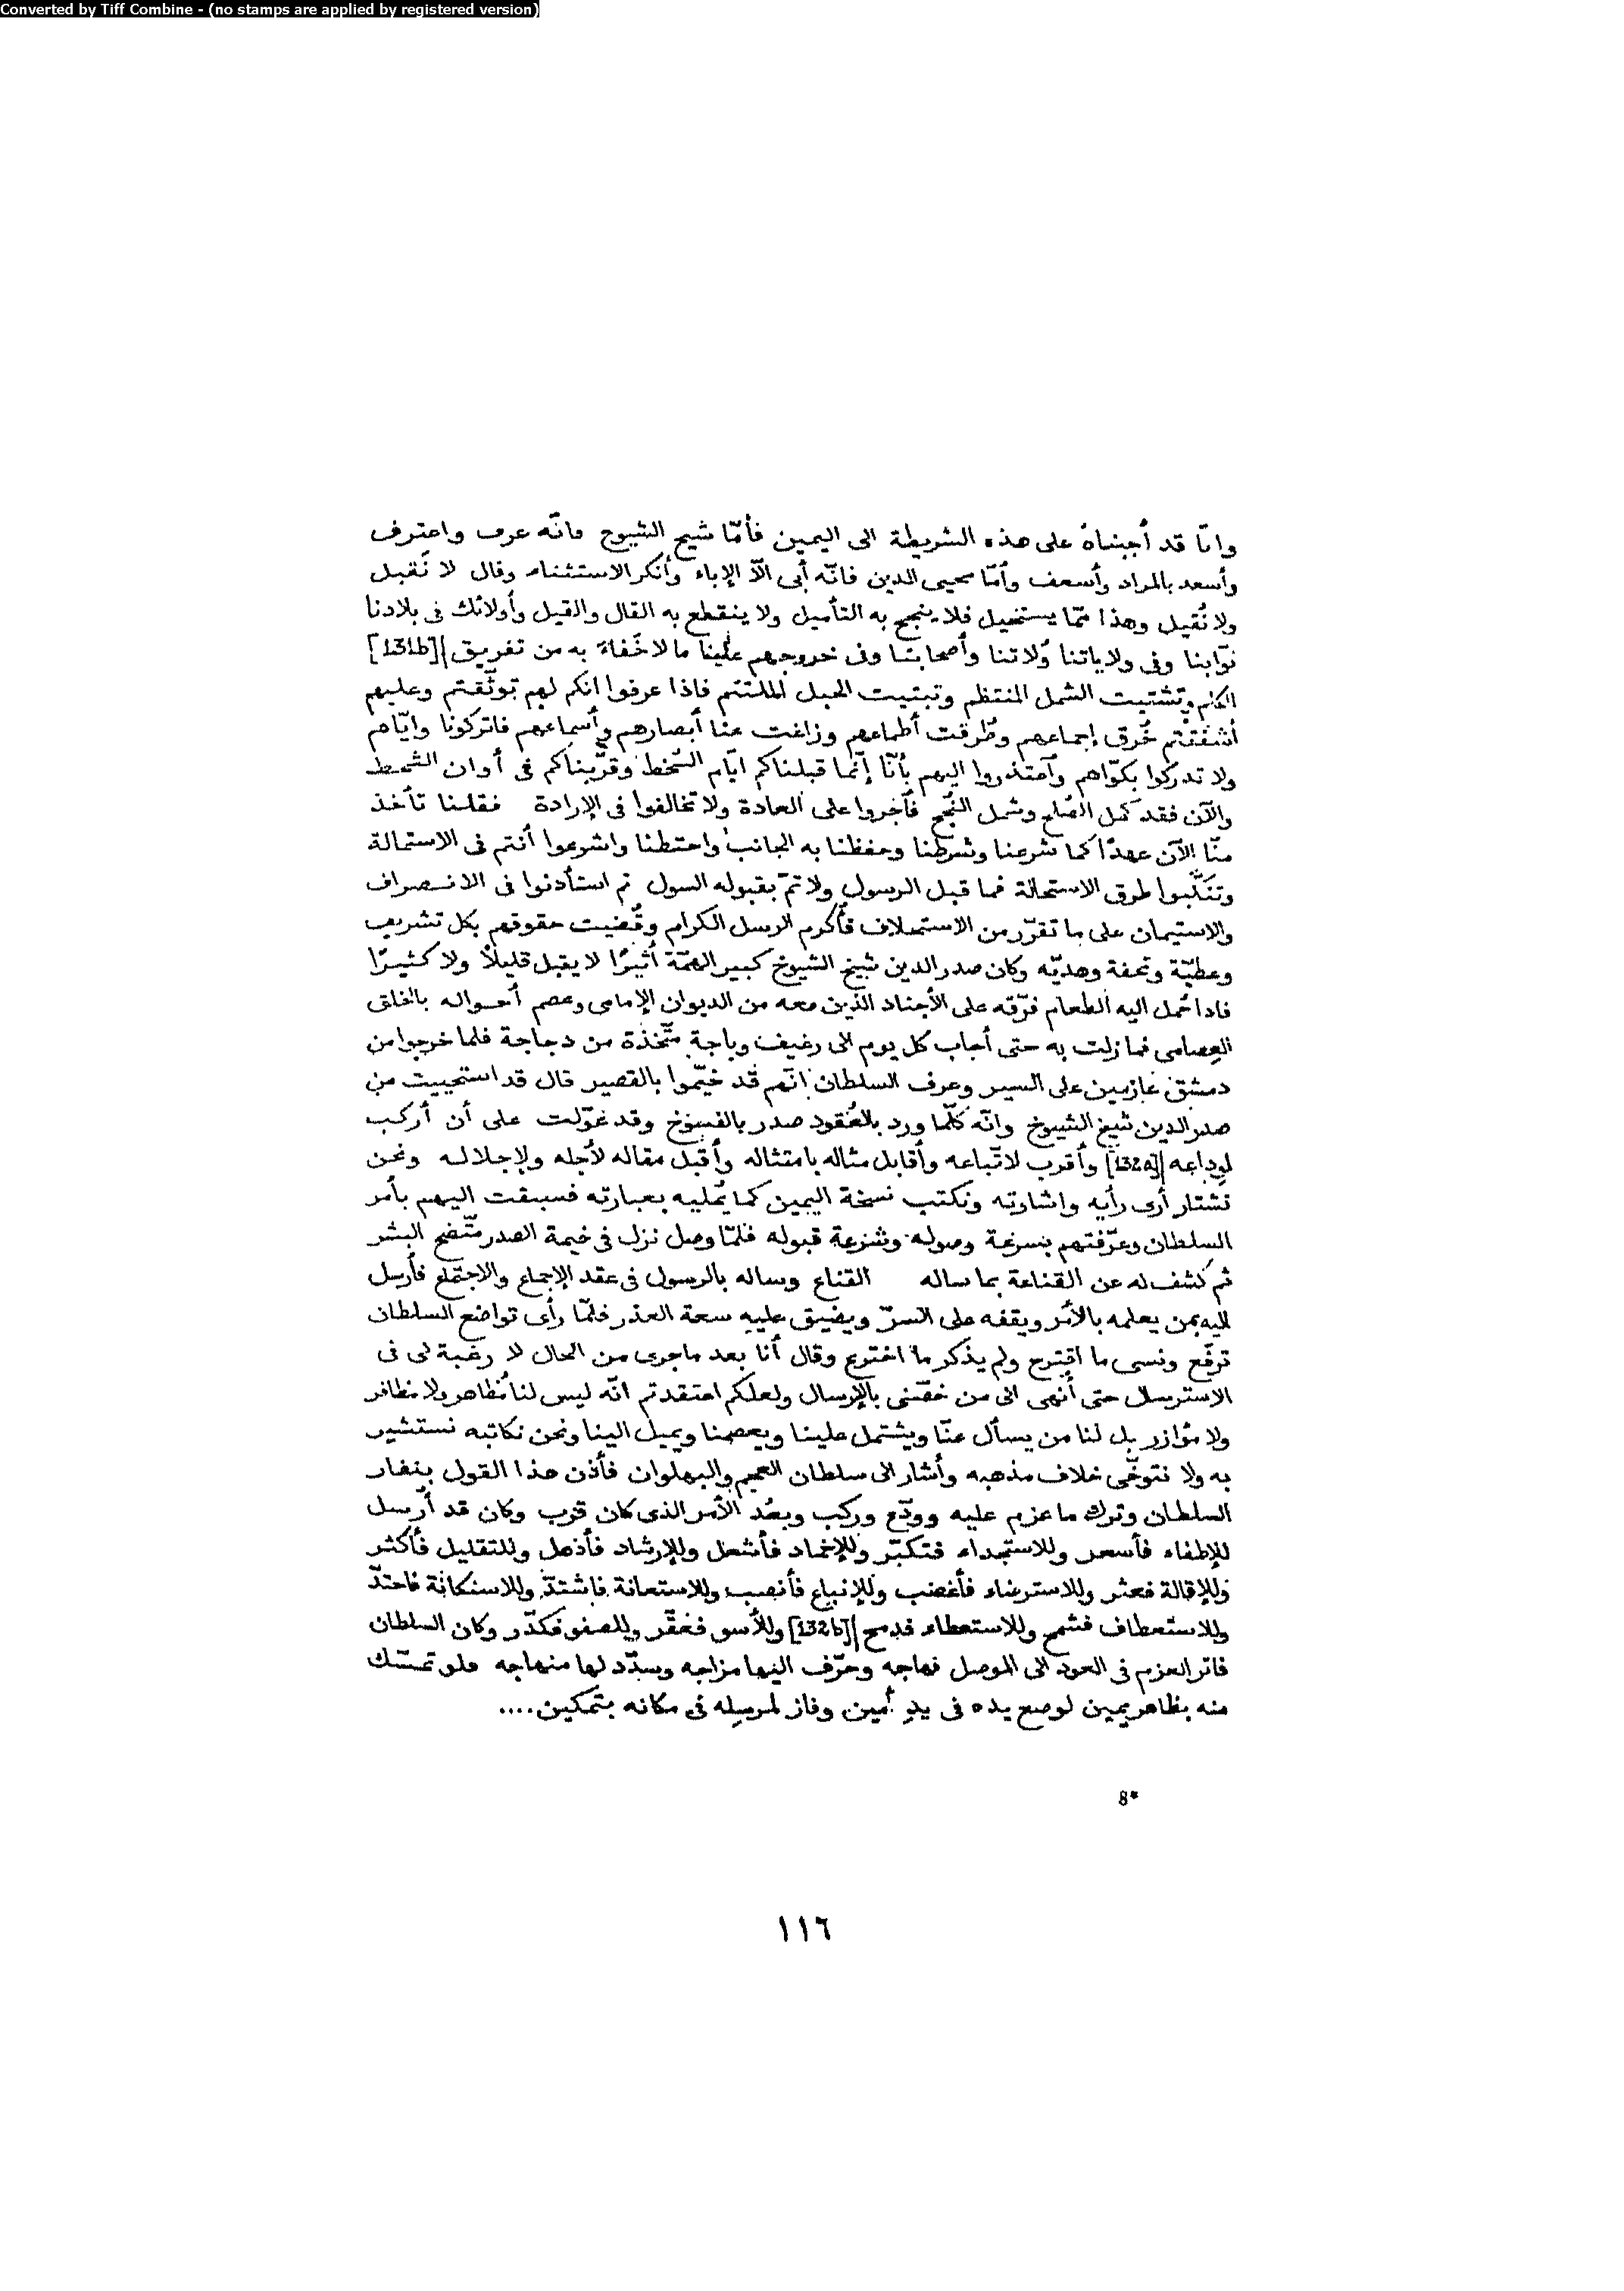 Converted by Tiff Combine - (no stamps are applied by registered version)
وانّا قد أجبناهُ على هذه الشريطة الى اليمين فأمّا شيخ الشيوخ فانّه عرف واعترف
وأسعد بالمراد وأسعف وأمّا محيى الدين فانّه أبى الّا الإباء وأنكر الاستثناء وقال لا نَقبل
ولا نُقيل وهذا ممّا يستحيل فلا ينجح به التأميل ولا ينقطع به القال والقيل وأولائك فى بلادنا
نوّابنا وفى ولاياتنا وُلاتنا وأصحابنا وفى خروجهم علينا ما لا خَفاءَ به من تفريق [131b]
الكلم وتشتيت الشمل المنتظم وتبتيت الحبل الملتئم فإذا عرفوا انكم لهم توثّقتم وعليهم
أشفقتم خُرق إجماعهم وطُرقت أطماعهم وزاغت عنا أبصارهم وأسماعهم فاتركونا وايّاهم
ولا تدركوا بكوّاهم وآعتذروا اليهم بأنّا إنّما قبلناكم ايّام السّخط وقرّبناكم فى أوان الشحط
والآن فقد كمل الصّلح وشمل النّجح فآجروا على العادة ولا تخالفوا فى الإرادة فقلنا تأخذ
منّا الآن عهدًا كما شرعنا وشرطنا وحفظنا به الجانب واحتطنا واشرعوا أنتم فى الاستمالة
وتنكّبوا طرق الاستحالة فما قبل الرسول ولا تمّ بقبوله السول ثم استأذنوا فى الانصراف
والاستيمان على ما تقرّر من الاستحلاف فأكرم الرسل الكرام وقُضيت حقوقهم بكل تشريف
وعطيّة وتحفة وهديّه وكان صدر الدين شيخ الشيوخ كبير الهمّة أثيرًا لا يقبل قليلاً ولا كثيرًا
فاذا حُمل اليه الطعام فرّقه على الأجناد الذين معه من الديوان الإمامى وعصم أحواله بالخلق
العصامى فما زلت به حتى أجاب كل يوم الى رغيف وباجة متّخذة من دجاجة فلما خرجوا من
دمشق عازمين على السير وعرف السلطان انّهم قد خيّموا بالقصير قال قد استحييت من
صدر الدين شيخ الشيوخ وانّه كلّما ورد بالعُقود صدر بالفسوخ وقد عوّلت على أن أركب
لوداعه [132a] وأقرب لاتّباعه وأقابل مثاله بامتثاله وأقبل مقاله لأجله ولإجلاله ونحن
نشتار أرى رأيه واشارته ونكتب نسخة اليمين كما يُمليه بعبارته فسبقت اليهم بأمر
السلطان وعرّفتهم بسرعة وصوله وشرعة قبوله فلمّا وصل نزل فى خيمة الصدر متّضح البشر
ثم كشف له عن القناعة بما ساله القناع وساله بالرسول فى عقد الإجماع والاجتماع فأرسل
اليه بمن يعلمه بالأمر ويقفه على السرّ ويضيق عليه سعة العذر فلمّا رأى تواضع السلطان
ترفّع ونسى ما اقترح ولم يذكر ما اخترع وقال أنا بعد ما جرى من الحال لا رغبة لى فى
الاسترسال حتى أنهى الى من خصّنى بالإرسال ولعلكم اعتقدتم انّه ليس لنا مُظاهر ولا مظافر
ولا مؤازر بل لنا من يسأل عنّا ويشتمل علينا ويعصمنا ويميل الينا ونحن نكاتبه نستشير
به ولا نتوخّى خلاف مذهبه وأشار الى سلطان العجم والبهلوان فأذن هذا القول بنفار
السلطان وترك ما عزم عليه وودّع وركب وبعُد الأمر الذى كان قرب وكان قد أُرسل
للإطفاء فأسعر وللاستجداء فتكبّر وللإخماد فأشعل وللإرشاد فأذهل وللتقليل فأكثر
وللإقالة فعثر وللاسترضاء فأغضب وللإنباع فأنضب وللاستعانة فاشتدّ وللاستكانة فاحتدّ
وللاستعطاف فشمخ وللاستعطاء فدمح [132b] وللأسو فعقّر وللصفو فكدّر وكان السلطان
فاتر العزم فى العود الى الموصل فهاجه وحرّف اليها مزاجه وسدّد لها منهاجه ولو تمسّك
منه بظاهر يمين لوضع يده فى يدِ أمين وفاز لمرسِله فى مكانه بتمكين....
8*
١١٦